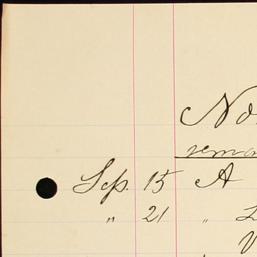 No
rema
Sep. 15 A
" 21 "